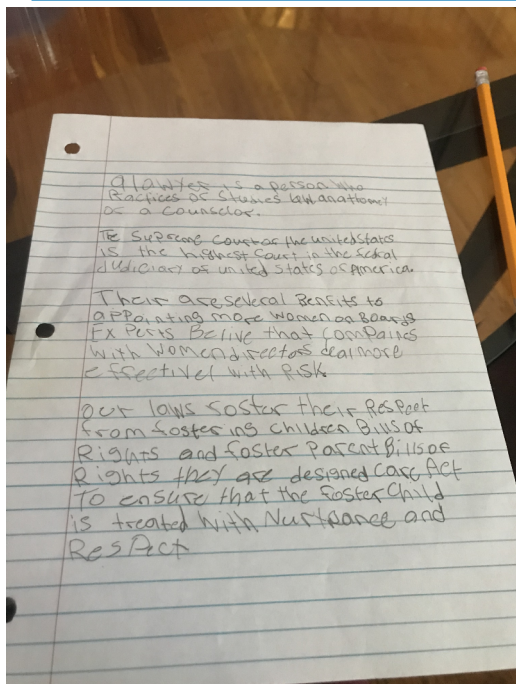 a lawyer is a person who
Practices or Studies law, anattorney
or a Counselor.
Te Supreme Court of the united States
is the highest Court in the fedral
Judiciary of united States of America.
Their are several Benfits to
appointing more women on Boards
Experts Belive that Compaines
with Women directors deal more
effectivel with Risk
our laws foster their Respect
from fostering children Bills of
Rights and foster Parent Bills of
Rights they are designed Care Act
To ensure that the foster Child
is treated with and